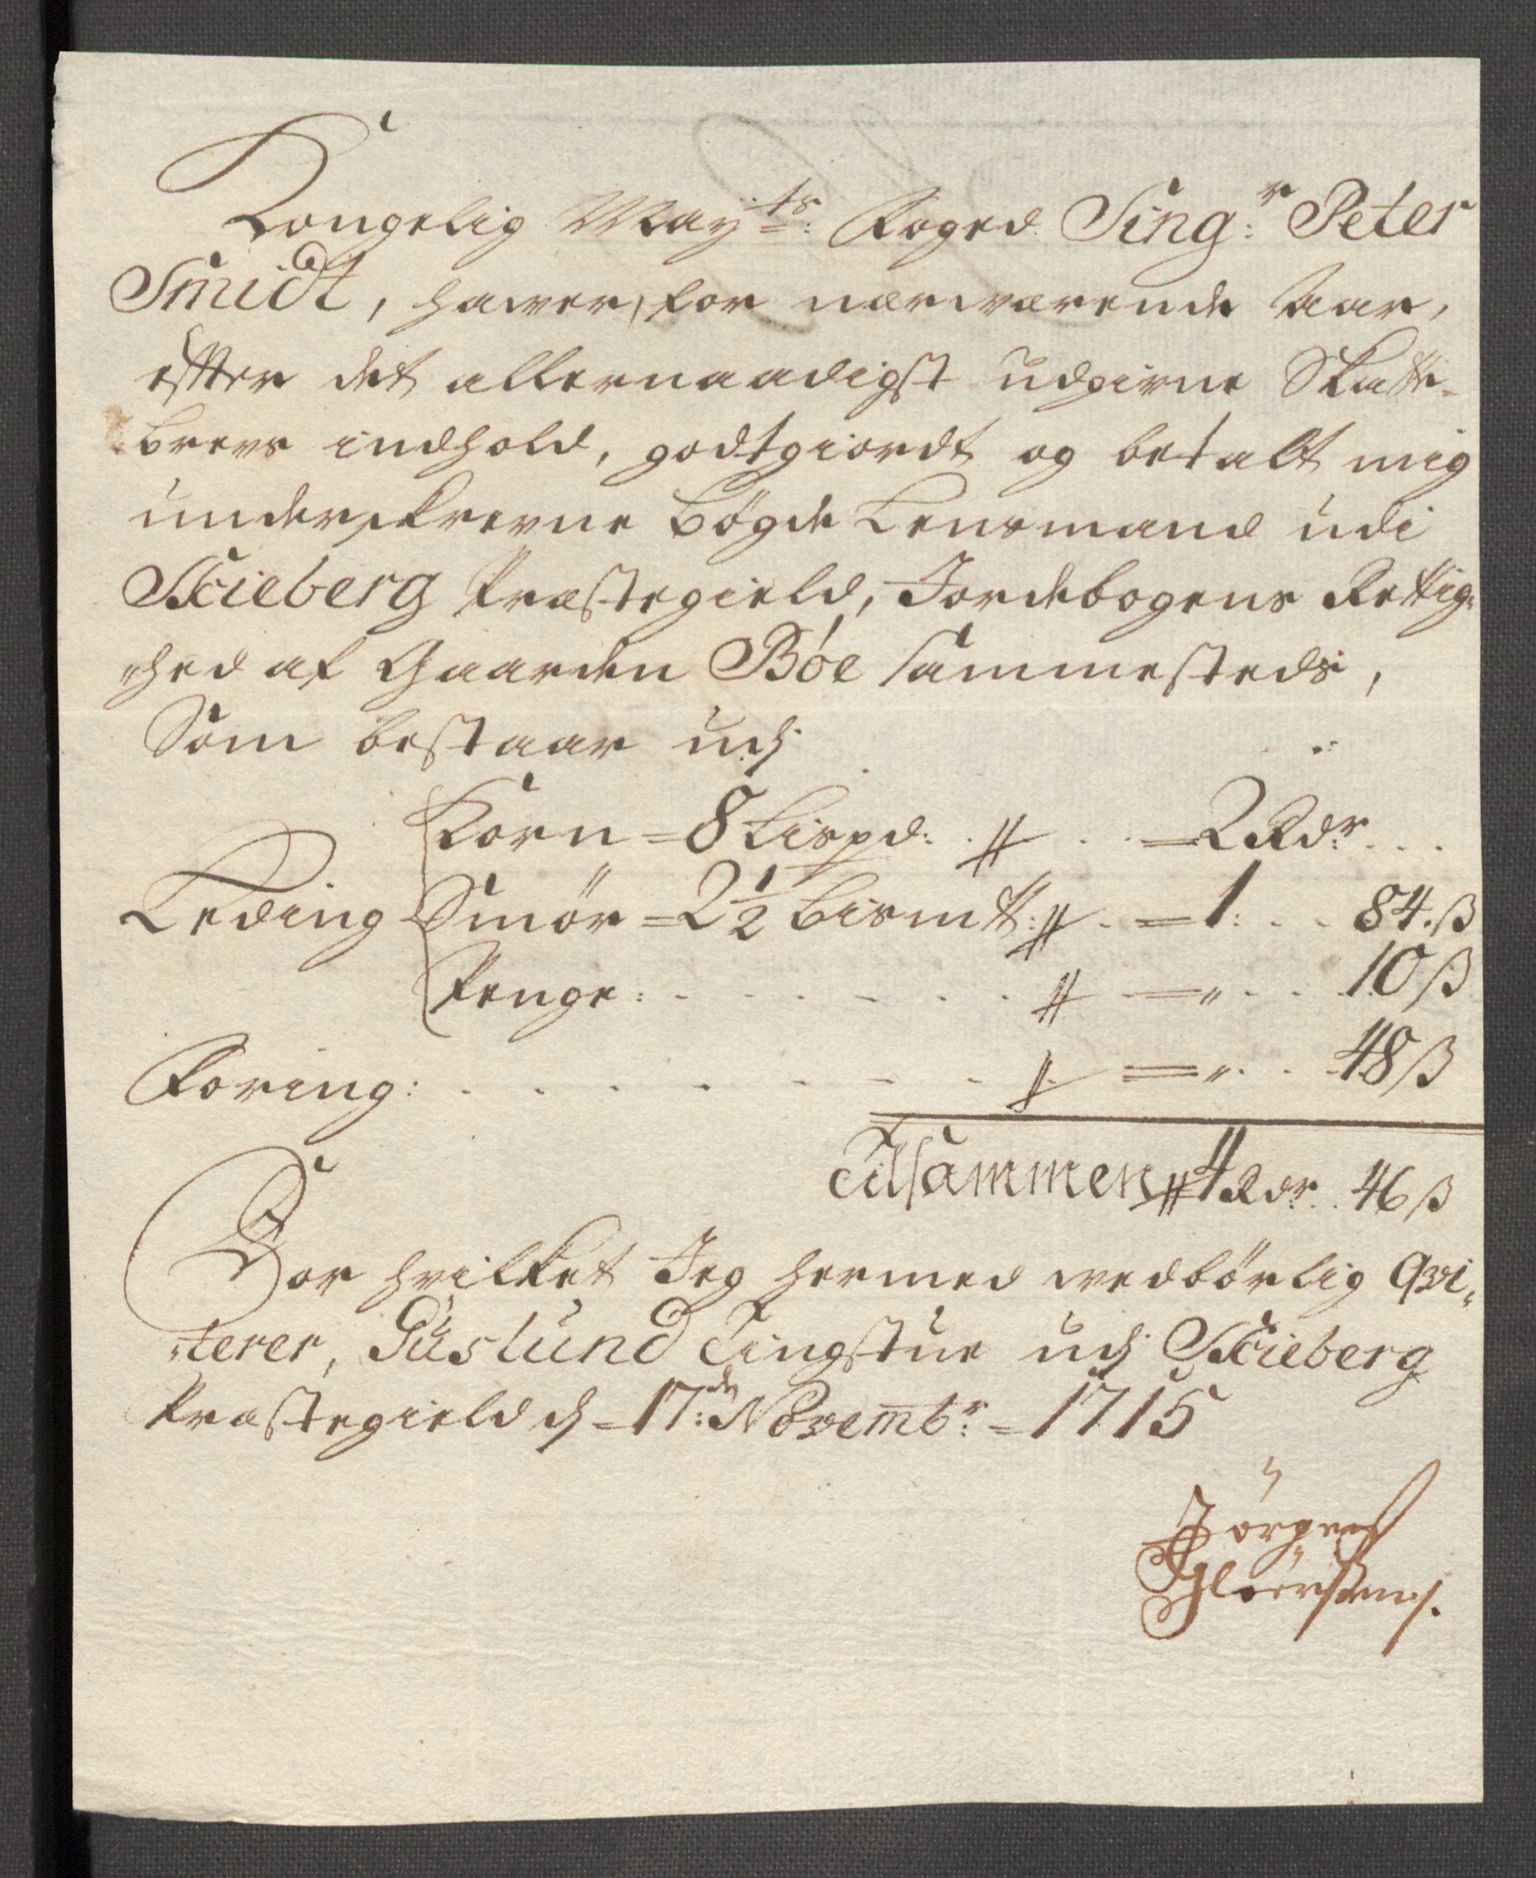 Kongelig May:ts Foged Sing:r Peter
Smidt, hawer, for nærwærende Aar,
effter det allernaadigst udgivne Skatte-
brevs indhold, godtgiordt og betalt mig
underskrevne Bøyde Lensmand udi
Schieberg Præstegield, Jordebogens Rettig-
-hed af Gaarden Bøe sammesteds,
Som bestaar udj
Korn = 8 Lispd: # = 2 Rdr
Leding Smör = 2 1/2 Bismt: # = 1: 84 ß
Penge: # = " 10 ß
Foring: # = " 48 ß
Tilsammen # 4 Rdr: 46 ß
For hvilket Jeg hermed wedbörlig Qvi-
-terer, Guslund Tingstue udj Schieberg
Præstegield d = 17:de Novembr: = 1715
Jörgen